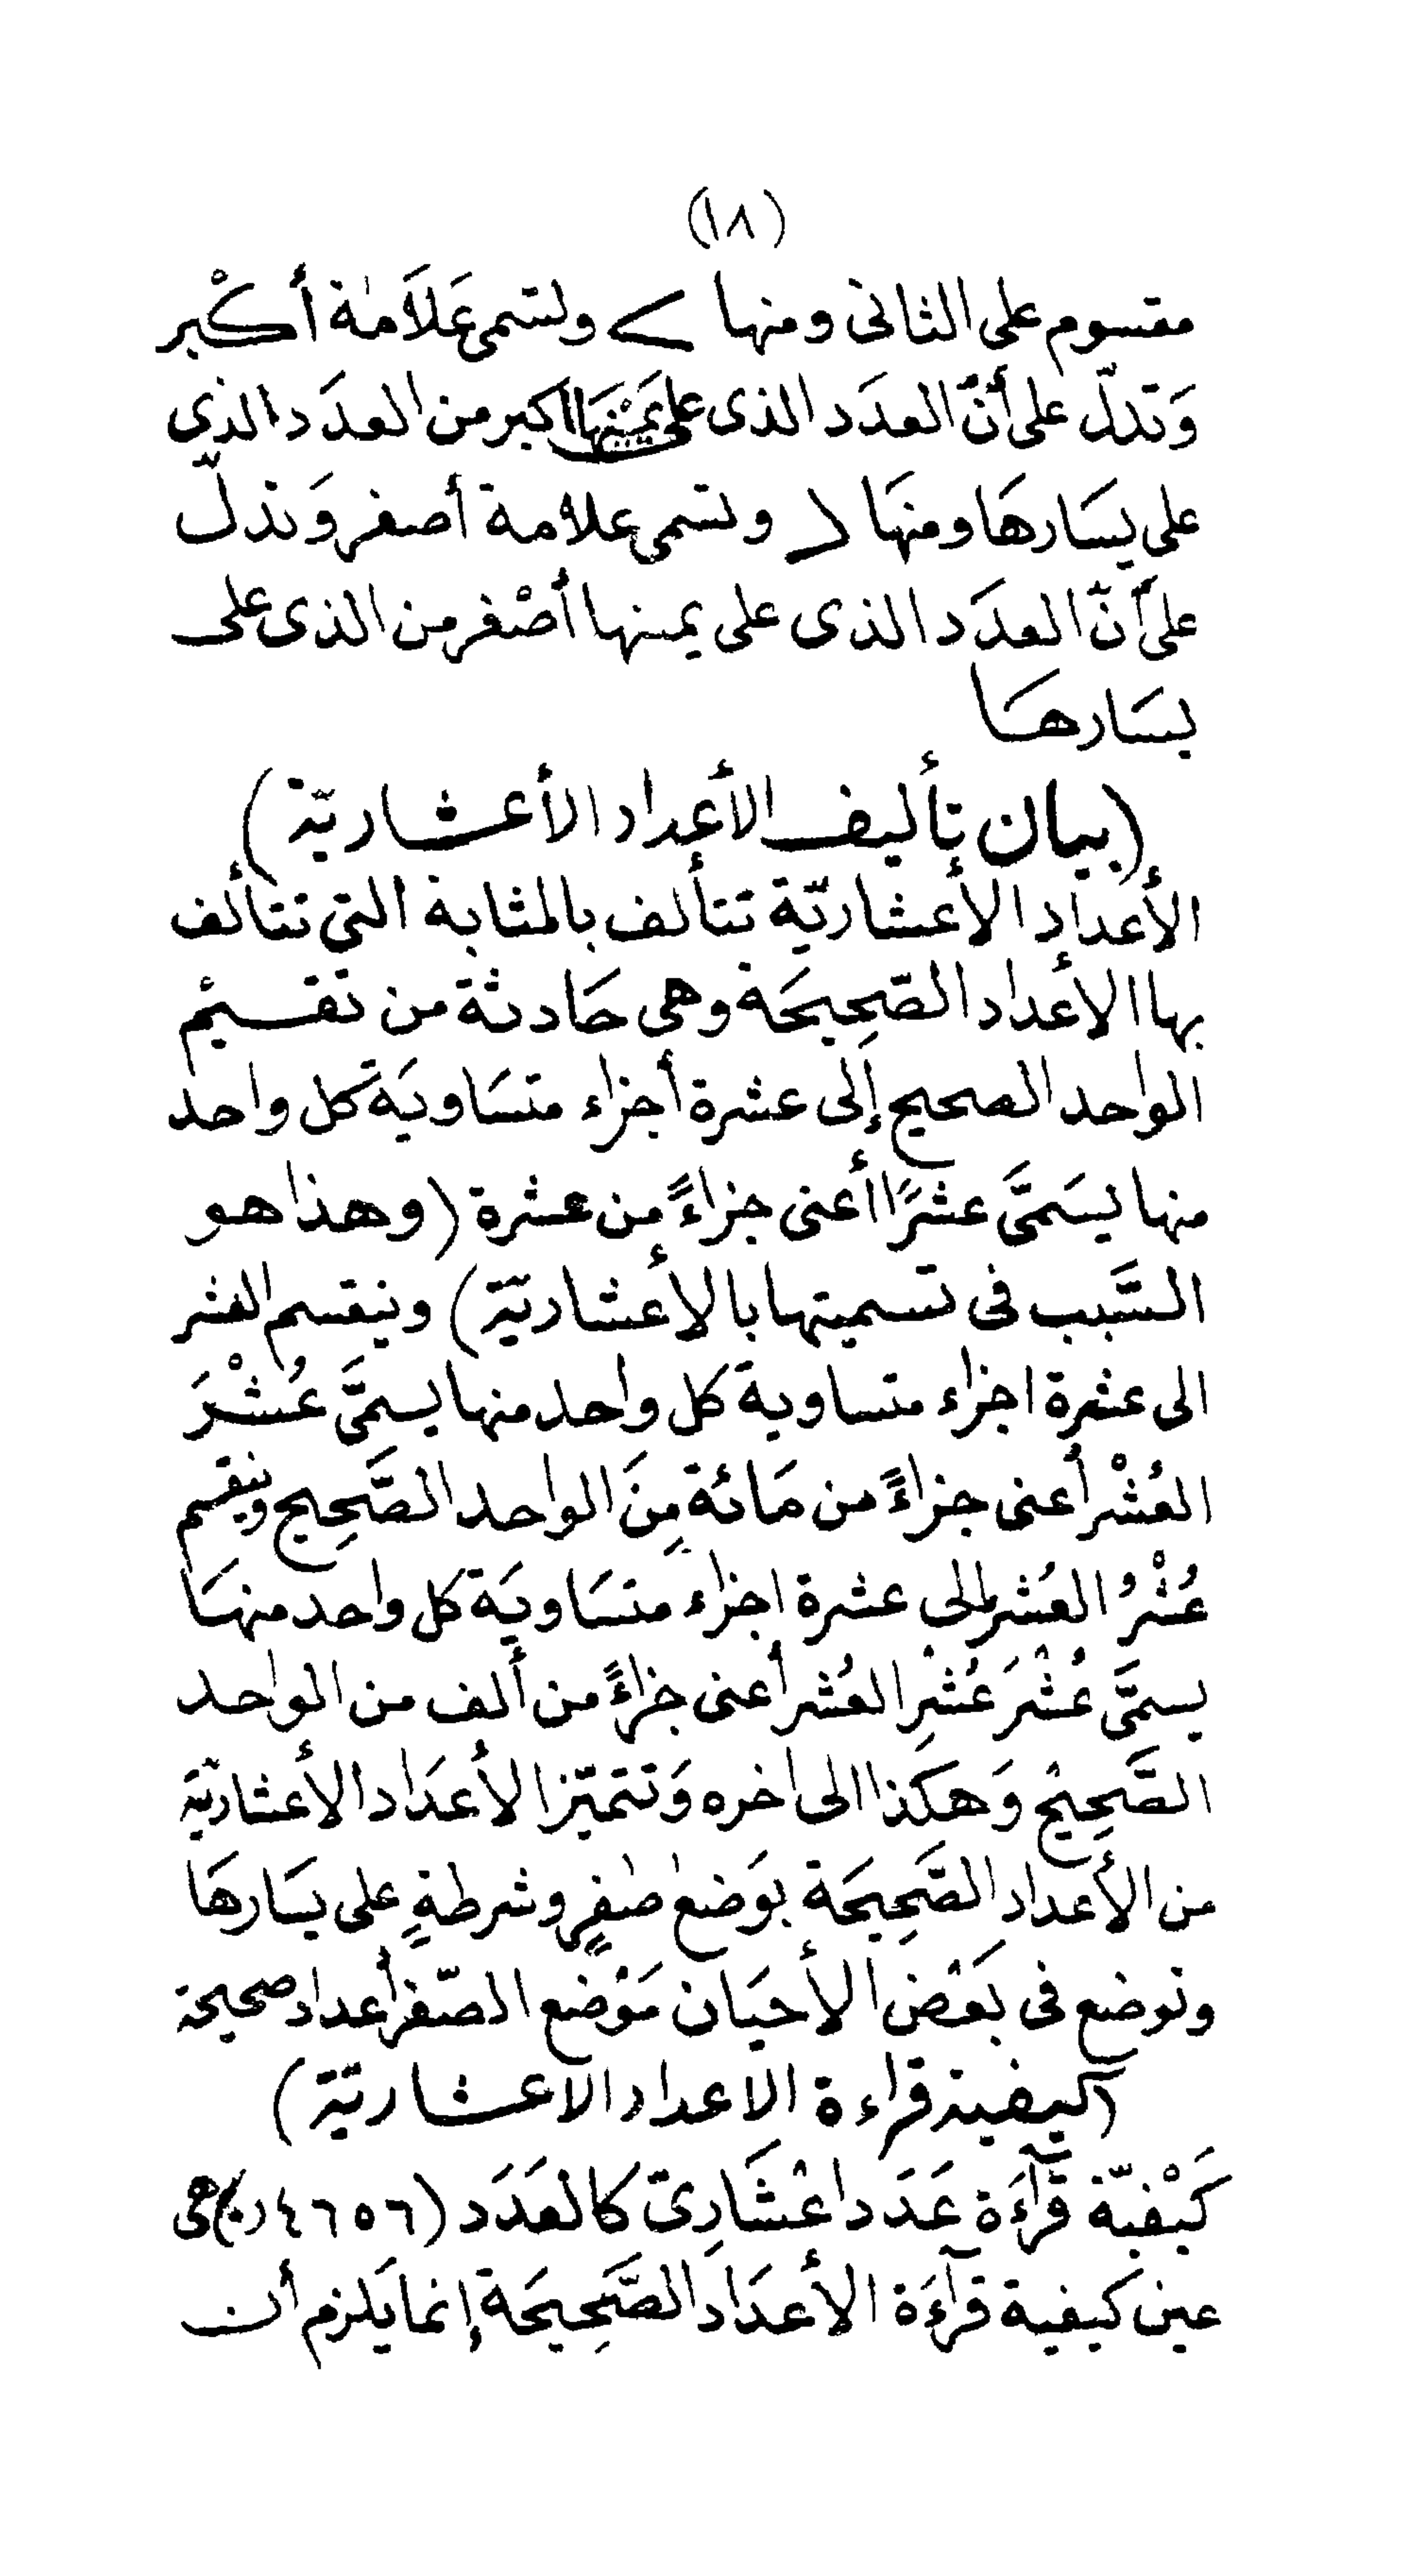 (١٨)
مقسوم على الثانى ومنها > ولتسمى عَلاَمة أكْبر
وَتدلّ على أنّ العدَد الذى على يَمْينهَا اكبر من العدَد الذي
على يسَارهَا ومنهَا < وتسمى علامة أصغر وَتدلّ
على أنّ العدَد الذى على يمينها أصْغر من الذى على
يسَارهَا
(بيان تأليف الأعداد الأعشاريّة)
الأعداد الأعشاريّة تتألف بالمثابة التى تتألف
بها الأعداد الصّحِيحَة وهى حَادثة من تقسيْم
الواحد الصحيح إلى عشرة أجزاء متسَاويَة كل واحد
منها يسَمَّى عشرًا أعنى جزاءً من عشرة (وهذا هو
السَّبب فى تسميتها بالأعشاريّة) وينقسم العشر
الى عشرة اجزاء متساوية كل واحد منها يسمَّى عُشْرَ
العُشْر أعنى جزاءً من مَائة مِنَ الواحد الصَّحِيح وينقسم
عُشْرُ العُشر إلى عشرة اجزاء متسَاويَة كل واحد منهَا
يسمَّى عُشْرَ عُشْرِ العُشر أعنى جزاءً من ألف من الواحد
الصَّحِيْح وَهكذا الى اخره وَتتميّز الأعدَاد الأعشاريّة
من الأعداد الصَّحِيحَة بوَضع صفرٍ وشرطةٍ على يسَارهَا
وتوضع فى بَعْض الأحيَان مَوْضع الصّفر أعداد صحيحة
(كيفية قراءة الاعداد الاعشاريّة)
كَيْفيّة قرآءَة عَدَد اعْشَارِىّ كالعَدَد (٠ر٤٦٥٦) هى
عين كيفية قرآءَة الأعدَاد الصَّحِيحَة إنما يَلزم أن